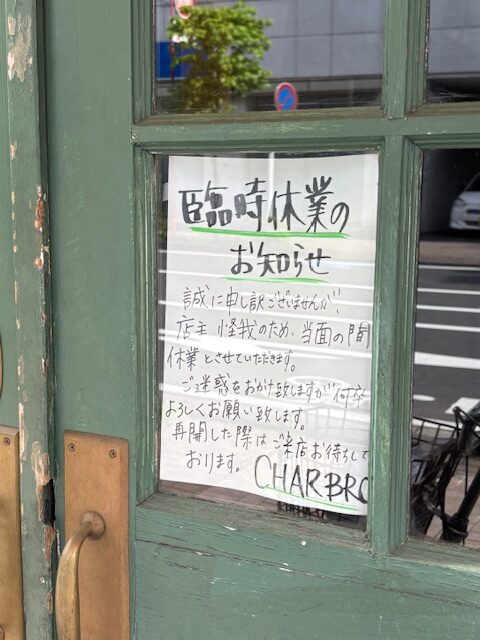 臨時休業の
お知らせ
誠に申し訳ございませんが、
店主 怪我のため、当面の間
休業とさせていただきます。
ご迷惑をおかけ致しますが何卒
よろしくお願い致します。
再開した際はご来店お待ちして
おります。
CHARBRO